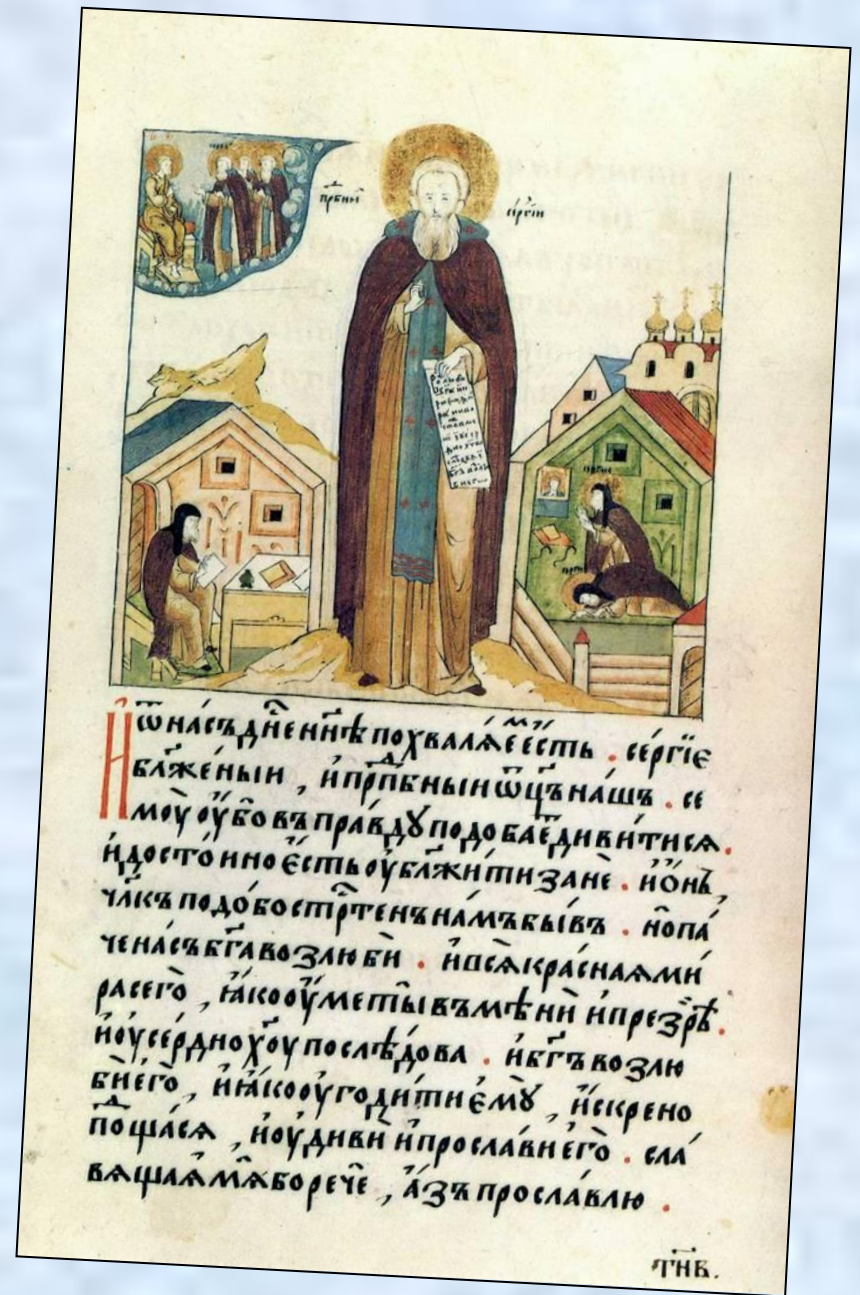 прⷣбныи
сергїи
И ѿнасъ дн҃е нн҃ѣ похвалѧ́ем есть . се́ргїе
бл҃же́ныи , и прпⷣбныи ѿц҃ъ на́шъ . се
моу оу́бо въ пра́вду подобае дивитисѧ .
и досто́ино есть оублⷤжити зане . и о́нъ ,
чл҃къ подо́бострⷭтенъ на́мъ бы́въ . но па́
че на́съ бг҃а возлюби . и всѧ кра́снаѧ ми́
ра сего̀ , ꙗко оуметы въмѣни и презрѣ .
и оусе́рдно хⷭ҇у послѣ́дова . и бг҃ъ возлю
би его̀ , и ꙗко оугоди́ти ему̀ , и́скрено
поⷣща́сѧ , и оудиви и просла́ви его̀ . сла́
вѧщаѧ мѧ бо рече , а́зъ просла́влю .
тн҃в.